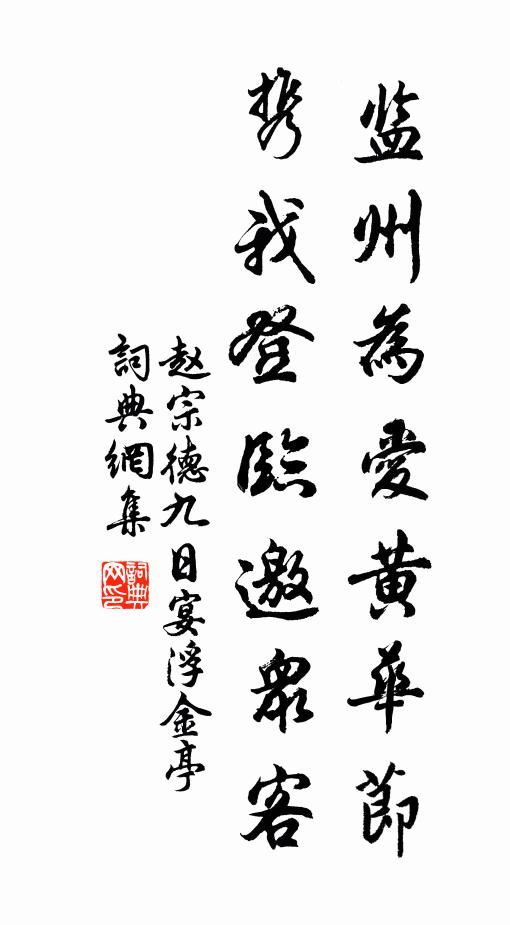 监州為愛黄華節
携我登臨邀衆客
赵宗德九日宴浮金亭
詞典網集
詞典网印